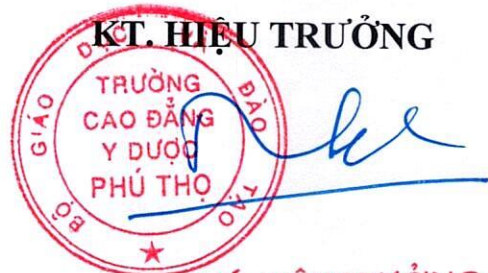 KT. HIỆU TRƯỞNG
BỘ GIÁO DỤC ĐÀO TẠO
TRƯỜNG
CAO ĐẲNG
Y DƯỢC
PHÚ THỌ